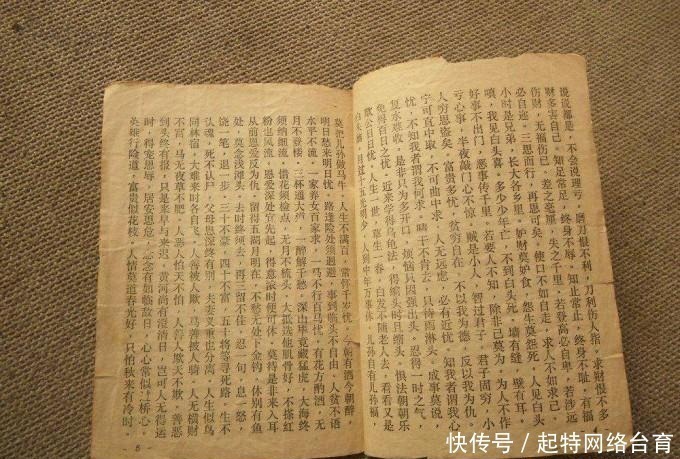 说说都是，不会说理亏。磨刀恨不利，刀利伤人指。求财恨不多
财多害自己。知足常足，终身不辱。知止常止，终身不耻。有福
伤财，无福伤己。差之毫厘，失之千里。若登高必自卑，若涉远
必自迩。三思而行，再思可矣。使口不如自走，求人不如求己。
小时是兄弟，长大各乡里。妒财莫妒食，怨生莫怨死。人见白头
嗔，我见白头喜。多少少年亡，不到白头死。墙有缝，壁有耳。
好事不出门，恶事传千里。若要人不知，除非己莫为。为人不作
亏心事，半夜敲门心不惊。贼是小人，智过君子。君子固穷，小
人穷思盗矣。富贵多忧，贫穷自在。不以我为德，反以我为仇。
宁可直中取，不可曲中求。人无远虑，必有近忧。知我者谓我心
忧，不知我者谓我何求。晴干不肯去，只待雨淋头。成事莫说，
复水难收。是非只为多开口，烦恼只因强出头。忍得一时之气，
免得百日之忧。近来学得乌龟法，得缩头时且缩头。惧法朝朝乐
欺公日日忧。人生一世，草生一春。白发不随老人去，看看又是
白头翁。月过十五光明少，人到中年万事休。儿孙自有儿孙福，
莫把儿孙做马牛。人生不满百，常怀千岁忧。今朝有酒今朝醉，
明日愁来明日忧。路逢险处须回避，事到临头不自由。人贫不语
水平不流。一家养女百家求，一马不行百马忧。有花方酌酒，无
月不登楼。三杯通大道，一醉解千愁。深山毕竟藏猛虎，大海终
须纳细流。惜花须检点，无月不梳头。大抵选他肌骨好，不搽红
粉也风流。恩爱深处宜先起，得意浓时便可休。莫待是非来入耳
从前恩爱反为仇。留得五湖明月在，不愁无处下金钩。休别有鱼
处，莫恋浅滩头。去时终须去，再三留不住。忍一句，息一怒，
饶一笔，退一步。三十不豪，四十不富，五十将等寻死路。生不
认魂，死不认尸。父母恩深终有别，夫妻义重也分离。人生似鸟
同林宿，大难来时各自飞。人善被人欺，马善被人骑。人无横财
不富，马无夜草不肥。人恶人怕天不怕，人善人欺天不欺。善恶
到头终有报，只是来早与来迟。黄河尚有澄清日，岂可人无得运
时。得宠思辱，居安思危。念念有如临敌日，心心常似过桥心。
英雄行险道，富贵似花枝。人情莫道春光好，只怕秋来有冷时。
·5·
快传号 / 起特网络台育